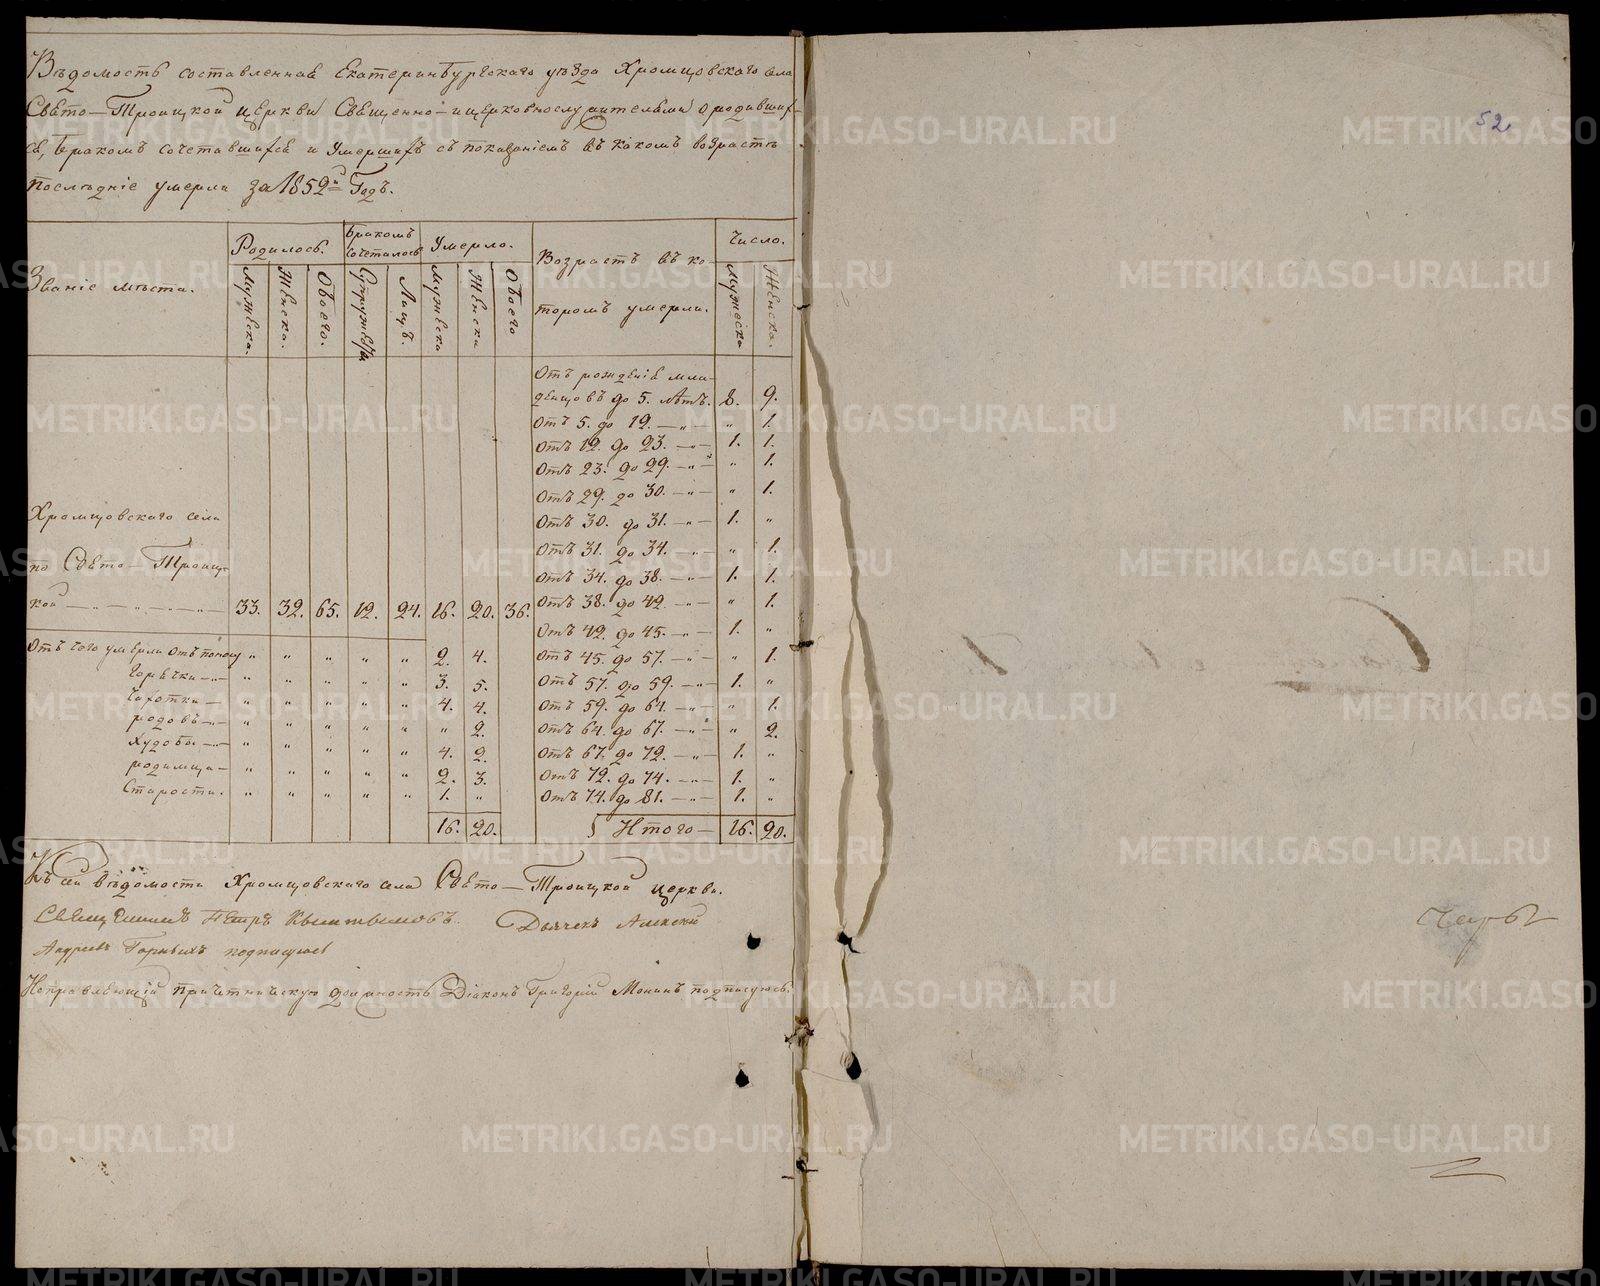 Вѣдомость составленная Екатеринбургскаго уѣзда Хромцовскаго села
Свято-Троицкой церкви Священно-ицерковнослужителями ородивших-
ся, бракомъ сочетавшихся и Умершихъ съ показаніемъ въ какомъ возрастѣ
послѣдніе умерли за 1852й Годъ.
Званіе мѣста. Родилось. Бракомъ сочеталось Умерло. Возрастъ въ ко- Число.
Мужеска. Женска. Обоего. Супружествъ Лицъ. Мужеска Женска Обоего торомъ умерли. Мужеска Женска.
Отъ рожденія мла-
денцовъ до 5. лѣтъ. 8. 9.
Отъ 5. до 12. — „ — „ 1.
Отъ 12. до 23. — „ — 1. 1.
Отъ 23. до 29. — „ — „ 1.
Отъ 29. до 30. — „ — „ 1.
Отъ 30. до 31. — „ — 1. „
Отъ 31. до 34. — „ — „ 1.
Отъ 34. до 38. — „ — 1. 1.
Отъ 38. до 42. — „ — „ 1.
Отъ 42. до 45. — „ — 1. „
Отъ 45. до 57. — „ — „ 1.
Отъ 57. до 59. — „ — 1. „
Отъ 59. до 64. — „ — „ 1.
Отъ 64. до 67. — „ — „ 2.
Отъ 67. до 72. — „ — 1. „
Отъ 72. до 74. — „ — 1. „
Отъ 74. до 81. — „ — 1. „
Итого — 16. 20.
Хромцовскаго села
по Свято-Троиц-
кой — „ — „ — „ — 33. 32. 65. 12. 24. 16. 20. 36.
Отъ того умерли отъ поносу „ „ „ „ „ 2. 4.
Горячки — „ — „ „ „ „ „ 3. 5.
Чахотки — „ „ „ „ „ 4. 4.
родовъ — „ — „ „ „ „ „ „ 2.
Худобы — „ — „ „ „ „ „ 4. 2.
родимца — „ „ „ „ „ 2. 3.
Старости. „ „ „ „ „ 1. „
16. 20.
Къ сей вѣдомости Хромцовскаго села Свято-Троицкой церкви.
Священникъ Петръ Дьячекъ Алексѣй
Андреевъ Горныхъ подписуюсь
Исправляющій причетническую должность Діаконъ Григорій Монинъ подписуюсь.
52
METRIKI.GASO-URAL.RU